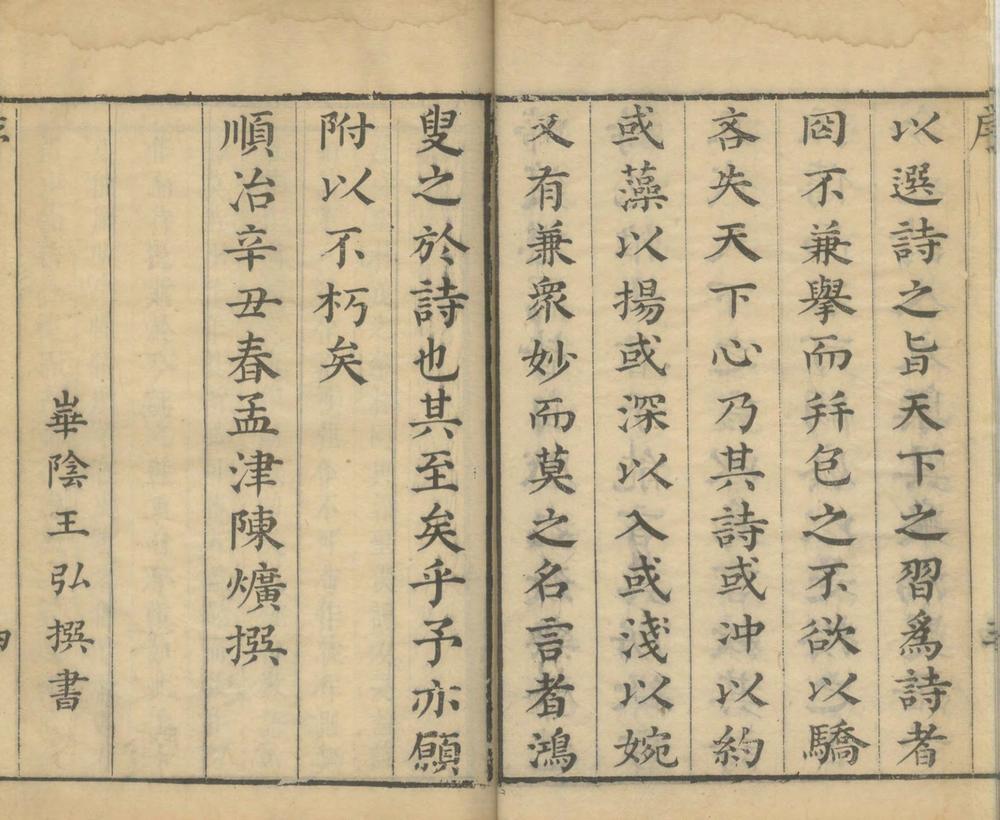 序
以選詩之旨天下之習為詩者
罔不兼舉而幷包之不欲以驕
吝失天下心乃其詩或沖以約
或藻以揚或深以入或淺以婉
又有兼衆妙而莫之名言者鴻
叟之於詩也其至矣乎予亦願
附以不朽矣
順治辛丑春孟津陳爌撰
崋陰王弘撰書